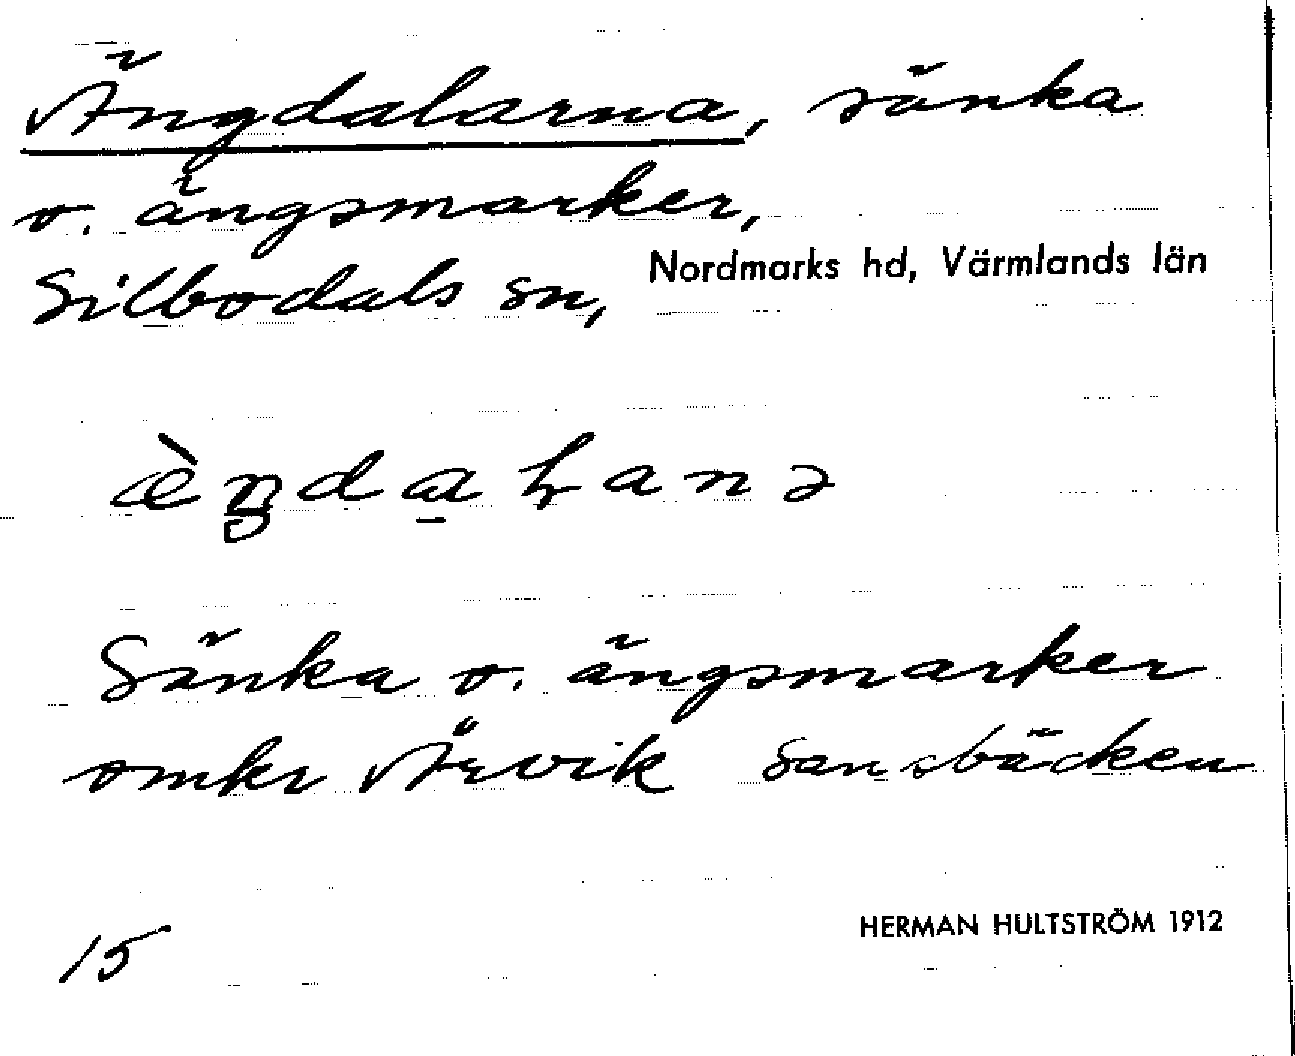 Ängdalarna, sänka
o. ängsmarker,
Silbodals sn, Nordmarks hd, Värmlands län
Sänka o. ängsmarker
omkr Årvik Sandsbäcken
15
HERMAN HULTSTRÖM 1912